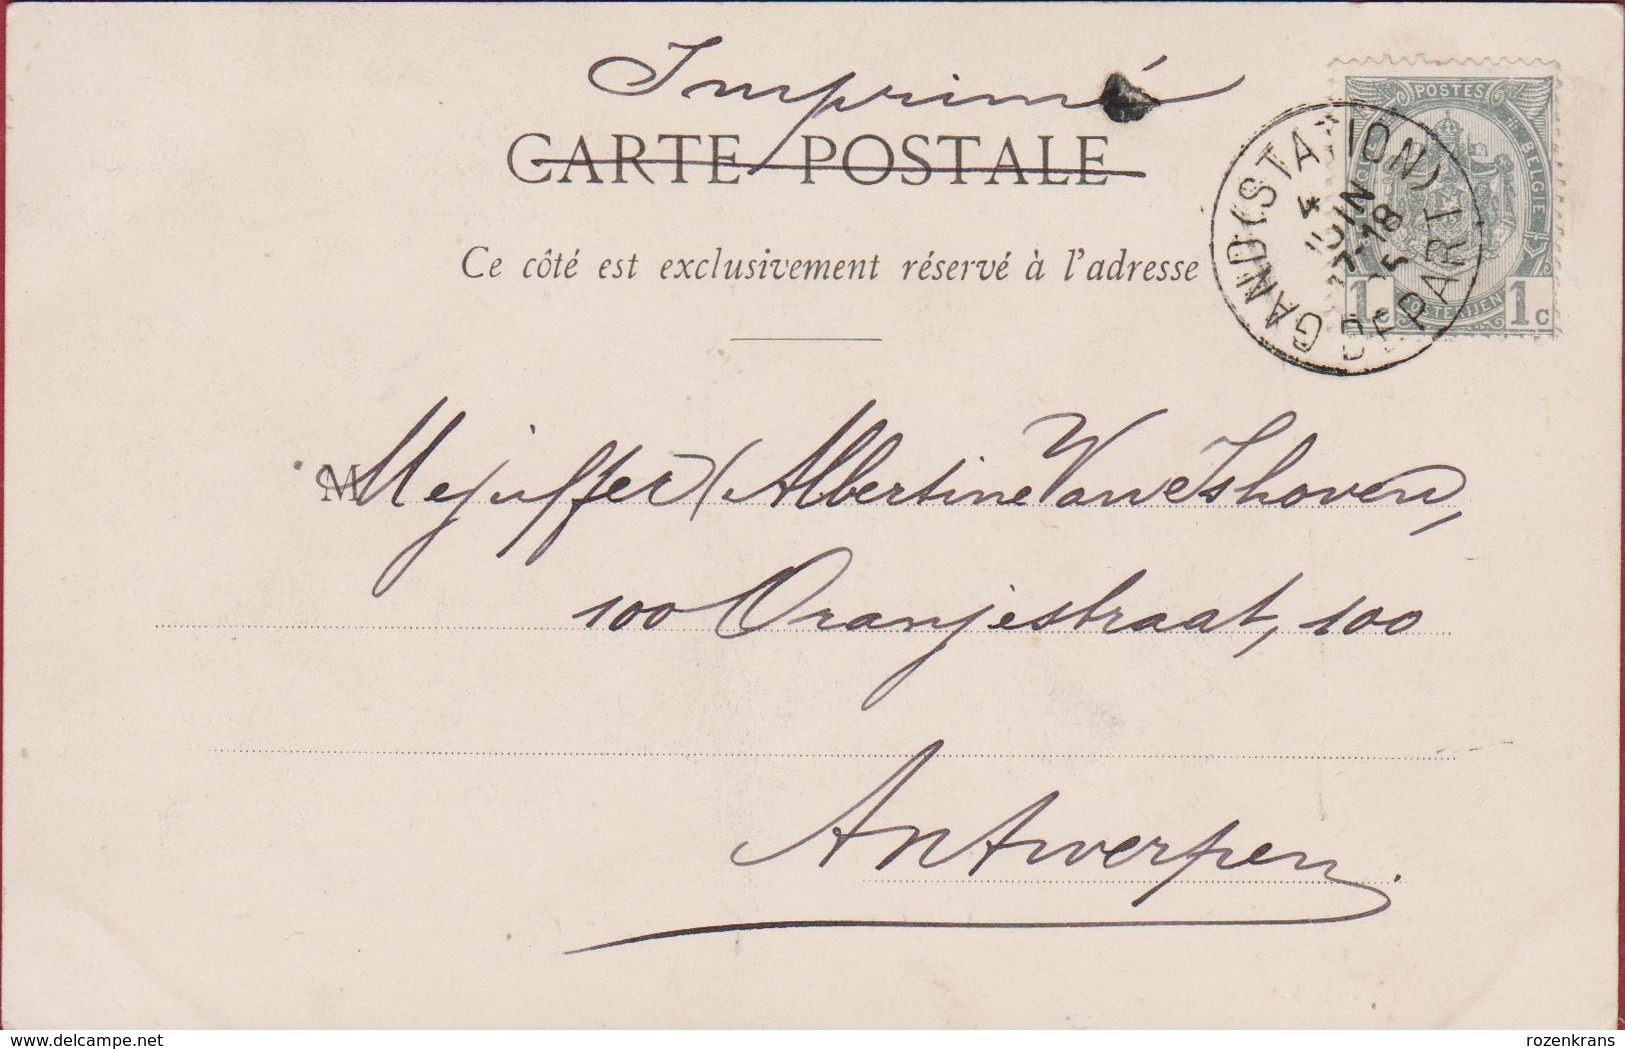 Imprimé
CARTE POSTALE
Ce côté est exclusivement réservé à l'adresse
POSTES
BELGIE
1c POSTERIJEN 1c
GAND (STATION)
4 JUIN
17-18
DEPART
M Mejuffer Albertine Van Ishoven,
100 Oranjestraat, 100
Antwerpen.
delcampe.net
rozenkrans